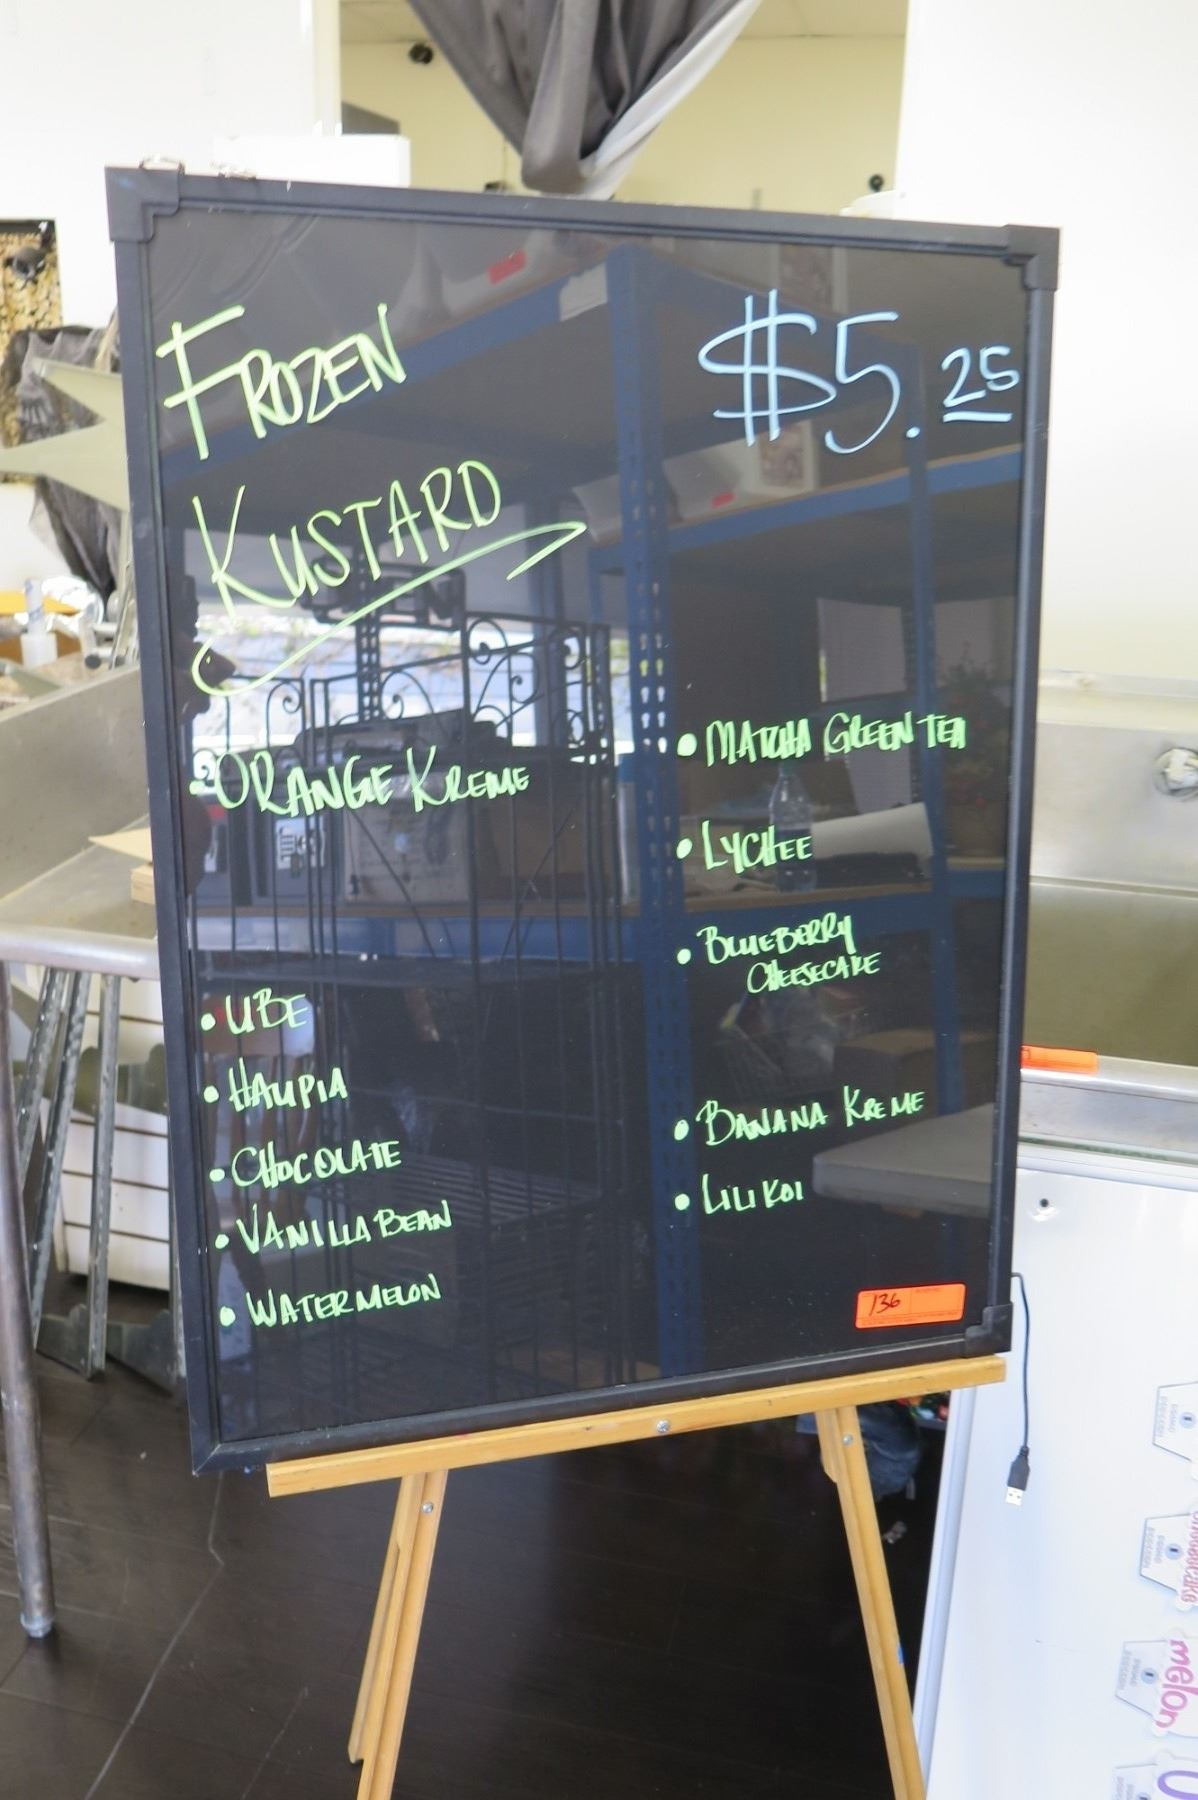 FROZEN
KUSTARD
$5.25
• ORANGE KREME
• UBE
• HAUPIA
• CHOCOLATE
• VANILLA BEAN
• WATERMELON
• MATCHA GREEN TEA
• LYCHEE
• BLUEBERRY
CHEESECAKE
• BANANA KREME
• LILIKOI
136
melon